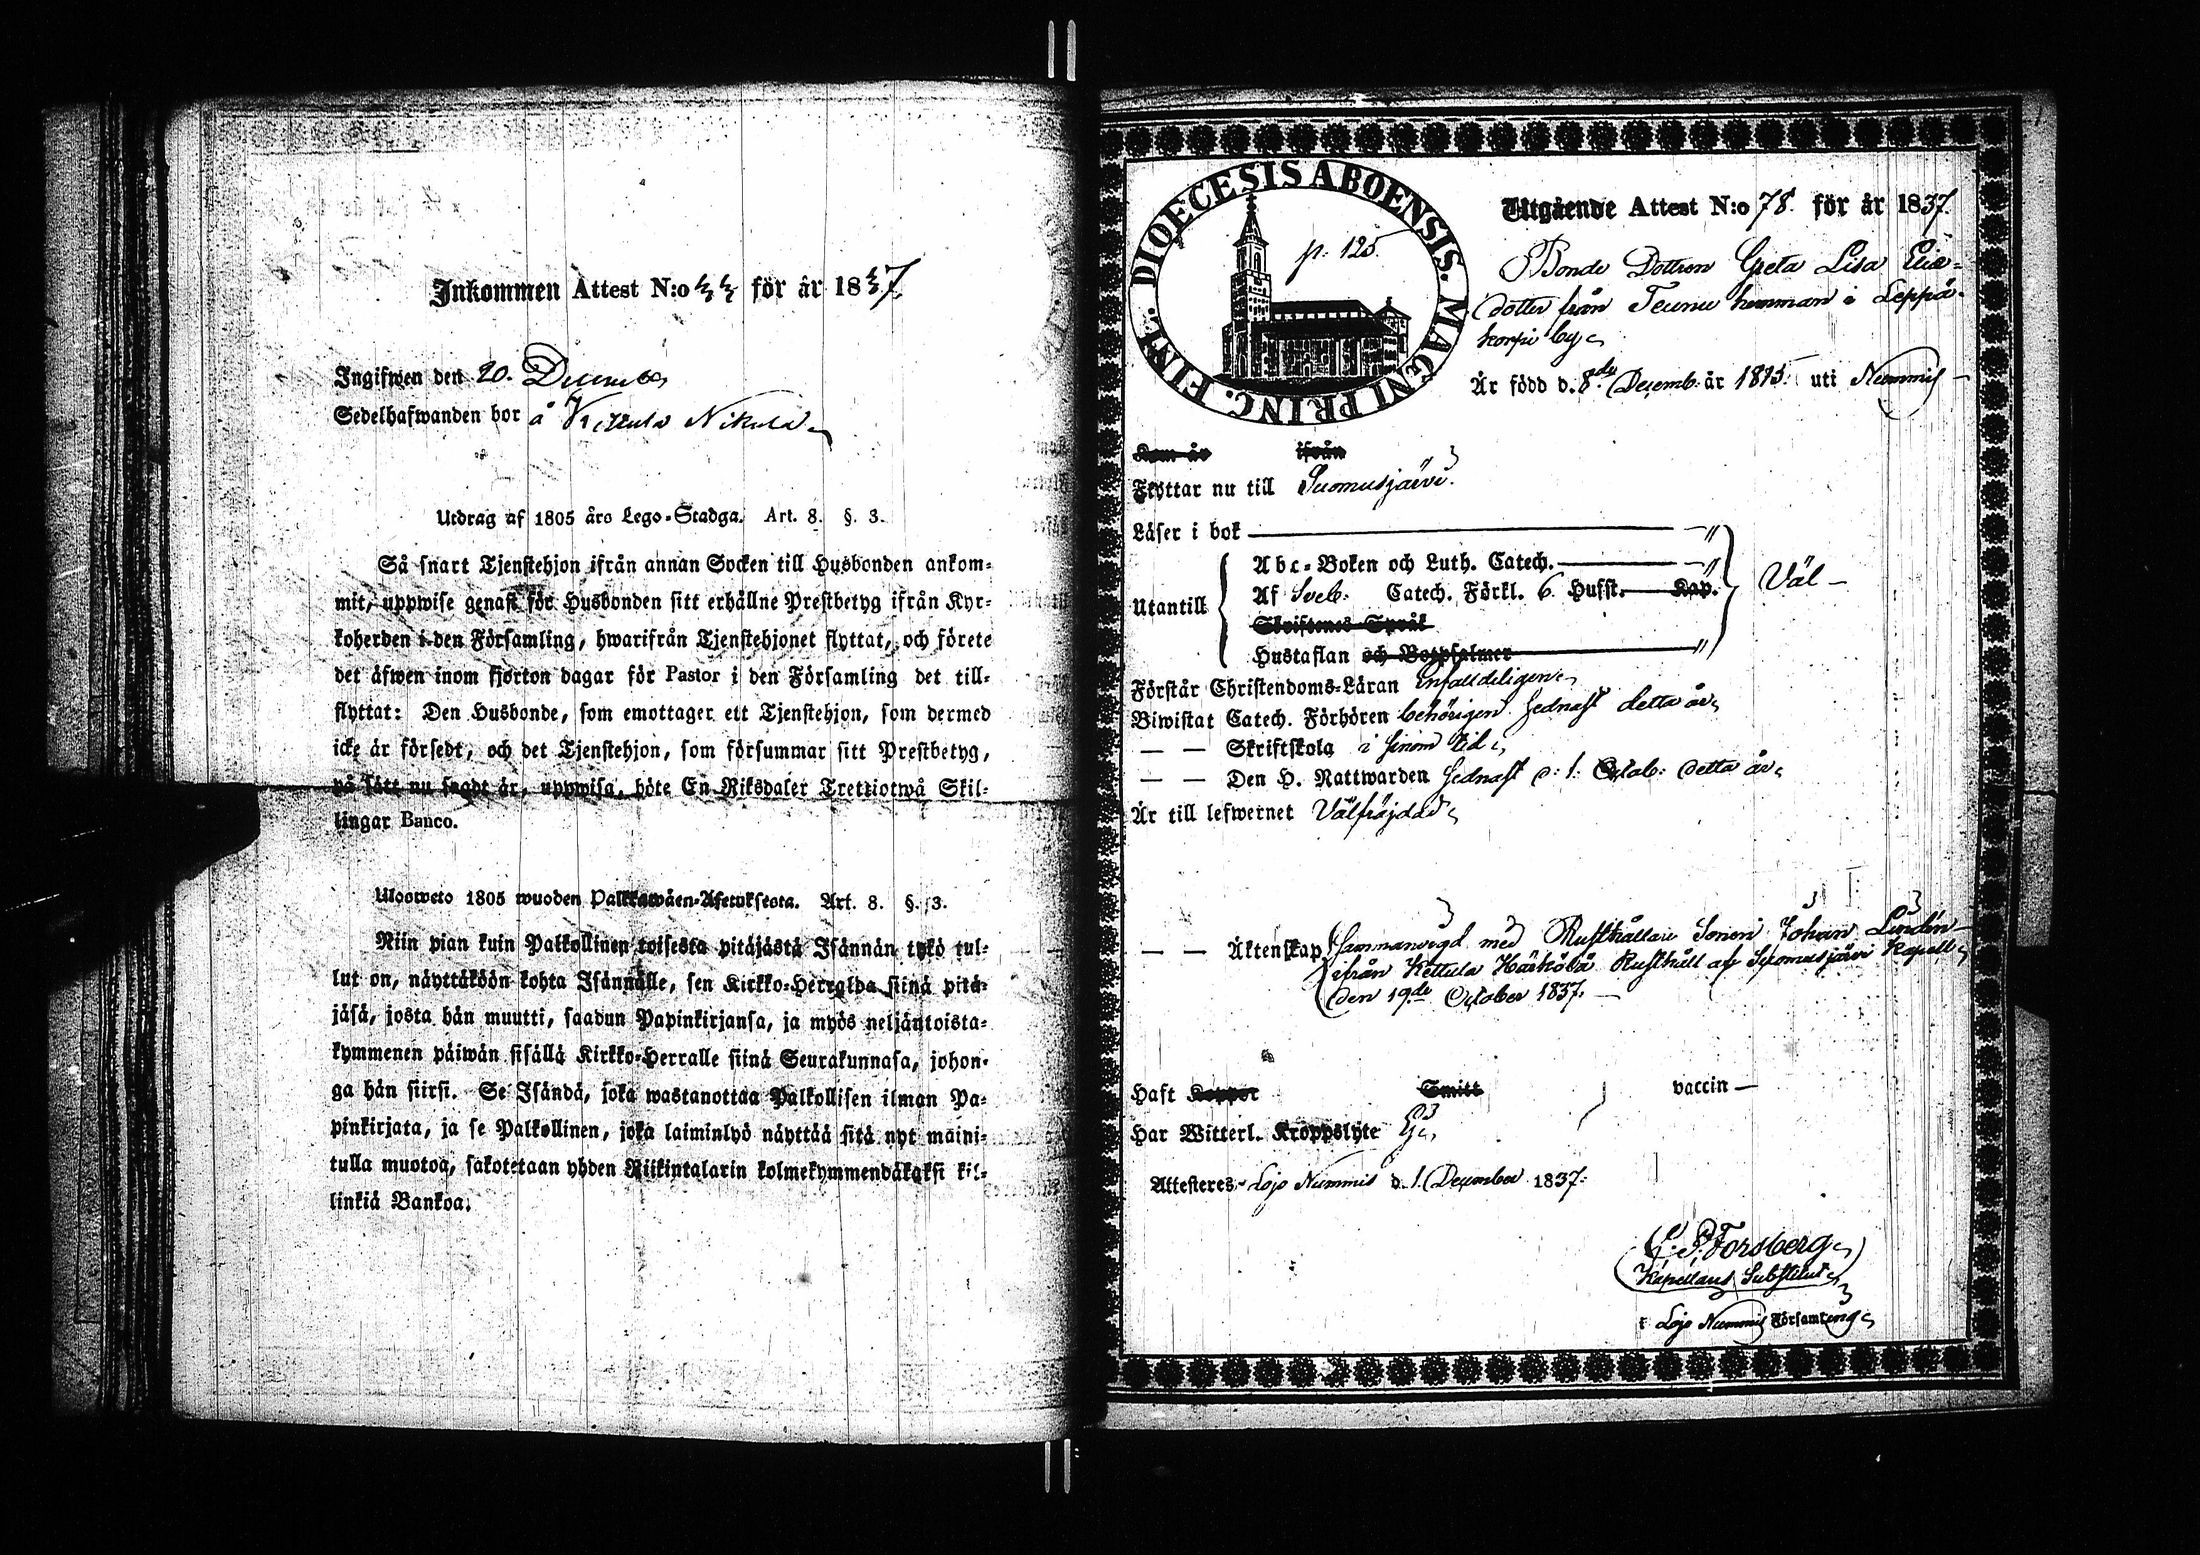 Inkommen Attest N:o 44 för år 1837.
Ingifwen den 20. December
Sedelhafwanden bor å Kettula Nikula
Utdrag af 1805 års Lego-Stadga. Art. 8. §. 3.
Så snart Tjenstehjon ifrån annan Socken till Husbonden ankom-
mit, uppwise genast för Husbonden sitt erhållne Prestbetyg ifrån Kyr-
koherden i den Församling, hwarifrån Tjenstehjonet flyttat, och förete
det äfwen inom fjorton dagar för Pastor i den Församling det till-
flyttat: Den Husbonde, som emottager ett Tjenstehjon, som dermed
icke är försedt, och det Tjenstehjon, som försummar sitt Prestbetyg,
på sätt nu sagdt är, uppwisa, böte En Riksdaler Trettiotwå Skil-
lingar Banco.
Ulosweto 1805 wuoden Palkkawäen-Asetuksesta. Art. 8. §. 3.
Niin pian kuin Palkollinen toisesta pitäjästä Isännän tykö tul-
lut on, näyttäköön kohta Isännälle, sen Kirkko-Herralda siinä pitä-
jäsä, josta hän muutti, saadun Papinkirjansa, ja myös neljäntoista-
kymmenen päiwän sisällä Kirkko-Herralle siinä Seurakunnasa, johon-
ga hän siirsi. Se Isändä, joka wastanottaa Palkollisen ilman Pa-
pinkirjata, ja se Palkollinen, joka laiminlyö näyttää sitä nyt maini-
tulla muotoa, sakotetaan yhden Riikintalarin kolmekymmendäkaksi kil-
linkiä Bankoa.
FINL. DIOECESIS ABOENSIS. MAGNI PRINC.
p. 125.
Utgående Attest N:o 78. för år 1837.
Bonde Dottren Greta Lisa Elia-
dotter från Teunu hemman i Leppä-
korpi by
Är född d. 8de Decemb. år 1815. uti Nummis
Kom år ifrån
Flyttar nu till Suomusjärvi.
Läser i bok
Utantill
Abc-Boken och Luth. Catech.
Af Sveb. Catech. Förkl. 6. Husst. Kap.
Skriftenes Språk
Hustaflan och Botpsalmer
Väl
Förstår Christendoms-Läran Enfalldeligen
Biwistat Catech. Förhören behörigen sednast detta år
— — Skriftskola i sinom tid
— — Den H. Nattwarden sednast d. 1. Octob: detta år
Är till lefwernet Välfräjdad
— — Äktenskap Sammanvigd med Rusthållare Sonen Johan Lindén
ifrån Kettula Härkölä Rusthåll af Suomusjärvi Kapell
den 19de October 1837.
Haft Koppor Smitt vaccin
Har Witterl. Kroppslyte Ej
Attesteres Lojo Nummis d. 1. December 1837.
Forsberg
Kapellans Substitut
i Lojo Nummis Församling